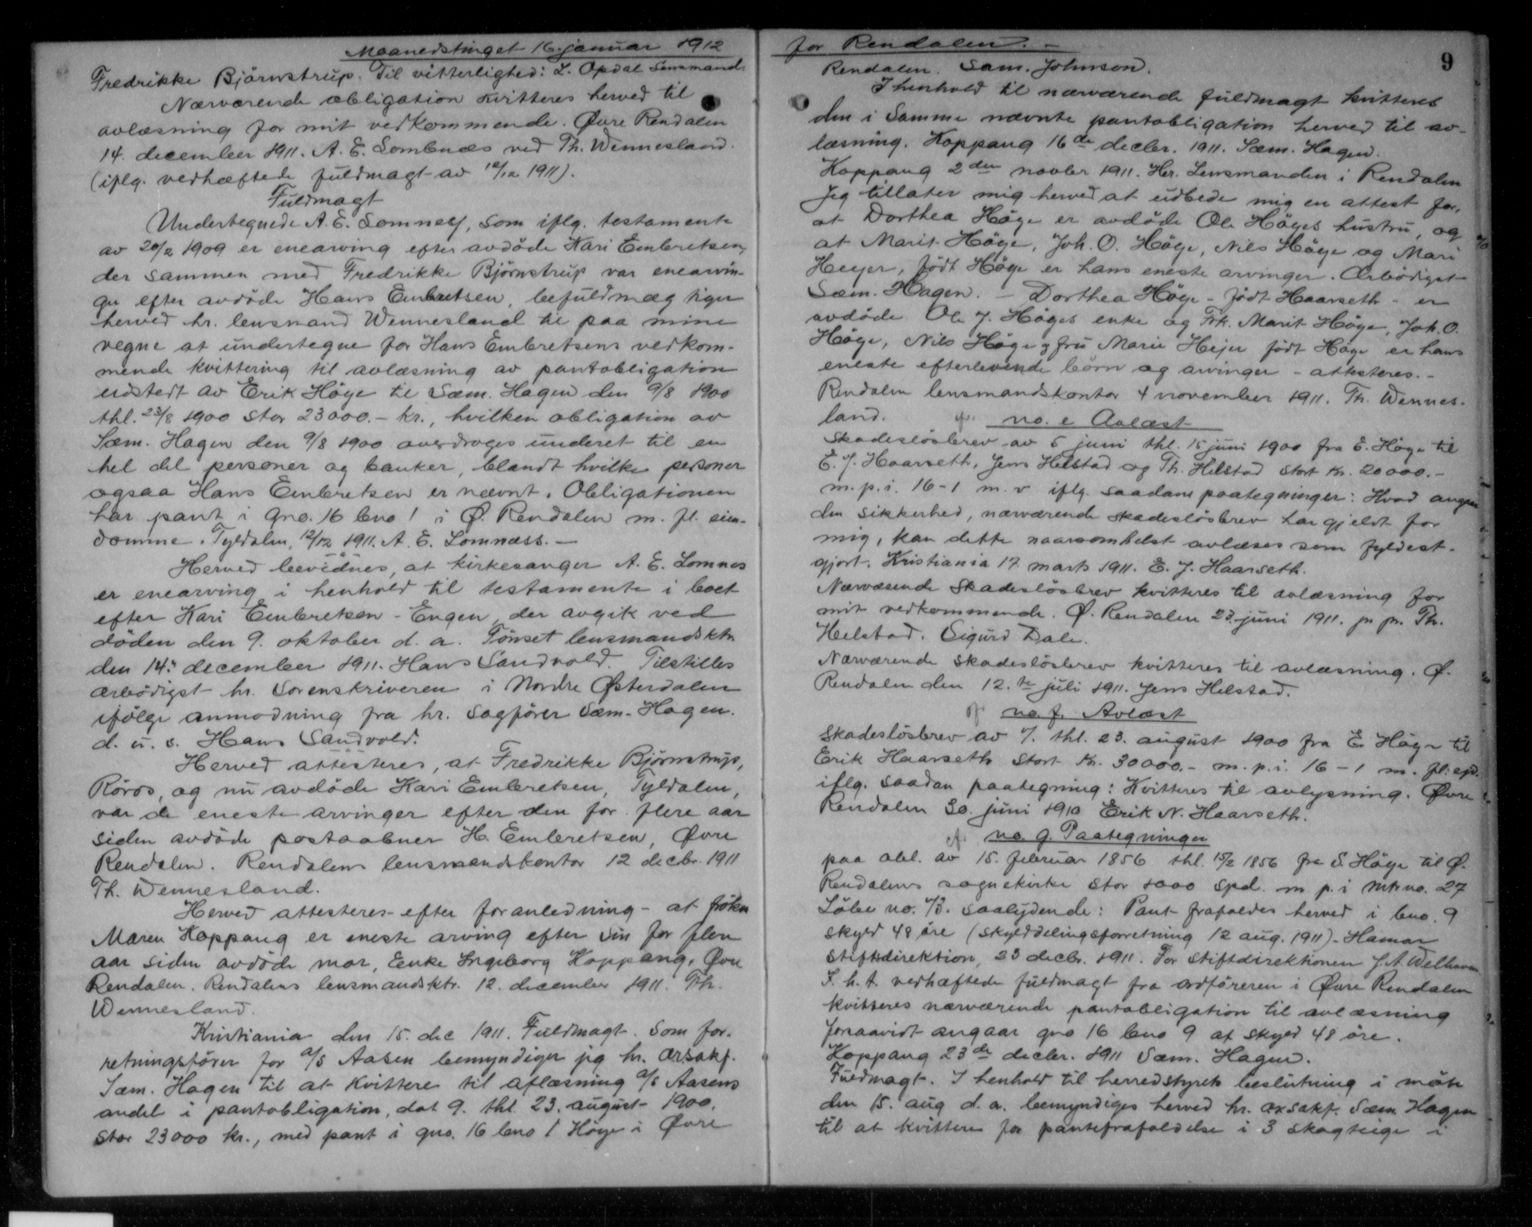 Maanedstinget 16. januar 1912
Fredrikke Björnstrup. Til vitterlighed: L. Opdal Lensmand.
Nærværende obligation kvitteres herved til
avlæsning for mit vedkommende. Øvre Rendalen
14. december 1911. A. E. Lomnæs ved Th. Wennesland.
(iflg. vedhæftede fuldmagt av 12/12 1911).
Fuldmagt
Undertegnede A. E. Lomnes, som iflg. testamente
av 20/2 1909 er enearving efter avdöde Kari Embretsen,
der sammen med Fredrikke Björnstrup var enearvin-
ge efter avdöde Hans Embretsen, befuldmægtiger
herved hr. lensmand Wennesland til paa mine
vegne at undertegne for Hans Embretsens vedkom-
mende kvittering til avlæsning av pantobligation
udstedt av Erik Höge til Sæm. Hagen den 9/8 1900
thl. 23/8 1900 stor 23000.- kr., hvilken obligation av
Sæm. Hagen den 9/8 1900 overdroges underet til en
hel del personer og banker, blandt hvilke personer
ogsaa Hans Embretsen er nævnt. Obligationen
har pant i gno. 16 bno 1 i Ø. Rendalen m. fl. eien-
domme. Tyldalen, 12/12 1911. A. E. Lomnæss. -
Herved bevidnes, at kirkesanger A. E. Lomnes
er enearving i henhold til testamente i boet
efter Kari Embretsen - Engen, der avgik ved
döden den 9. oktober d. a. Tönset lensmandsktr.
den 14. december 1911. Hans Sandvold. Tilstilles
ærbödigst hr. Sorenskriveren i Nordre Østerdalen
ifölge anmodning fra hr. sagförer Sæm. Hagen.
d. u. s. Hans Sandvold.
Herved attesteres, at Fredrikke Björnstrup,
Röros, og nu avdöde Kari Embretsen, Tyldalen,
var de eneste arvinger efter den for flere aar
siden avdöde postaabner H. Embretsen, Øvre
Rendalen. Rendalens lensmandskontor 12 decbr. 1911
Th. Wennesland.
Herved attesteres - efter foranledning - at fröken
Maren Koppang er eneste arving efter sin for flere
aar siden avdöde mor, Enke Ingeborg Koppang, Øvre
Rendalen. Rendalens lensmandsktr. 12. december 1911. Th.
Wennesland.
Kristiania den 15. dec 1911. Fuldmagt. Som for-
retningsförer for a/s Aasen bemyndiger jeg hr. orsakf.
Sæm. Hagen til at kvittere til aflæsning a/s Aasens
andel i pantobligation, dat 9. thl. 23. august 1900,
stor 23000 kr., med pant i gno. 16 bno 1 Höye i Øvre
for Rendalen. -
9
Rendalen. Sam. Johnson.
I henhold til nærværende fuldmagt kvitteres
den i samme nævnte pantobligation herved til av-
læsning. Koppang 16de decbr. 1911. Sæm. Hagen.
Koppang 2den novbr 1911. Hr. Lensmanden i Rendalen
Jeg tillater mig herved at udbede mig en attest for,
at Dorthea Höge er avdöde Ole Höges hustru, og
at Marit Höge, Joh. O. Höge, Nils Höge og Mari
Heyer, födt Höge er hans eneste arvinger. Ærbödigst
Sæm. Hagen. - Dorthea Höge - födt Haarseth - er
avdöde Ole J. Höges enke og Frk. Marit Höge, Joh. O.
Höge, Nils Höge og fru Marie Hejer födt Höge er hans
eneste efterlevende börn og arvinger - attesteres. -
Rendalen lensmandskontor 4 november 1911. Th. Wennes-
land.
no. e Avlæst
Skadeslösbrev av 5 juni thl. 15 juni 1900 fra E. Höge til
E. J. Haarseth, Jens Helstad og Th. Helstad stort kr. 20000.-
m. p. i. 16-1 m. v iflg. saadane paategninger: Hvad angaar
den sikkerhed, nærværende skadeslösbrev har gjeldt for
mig, kan dette naarsomhelst avlæses som fyldest-
gjort. Kristiania 17 marts 1911. E. J. Haarseth.
Nærværende skadeslösbrev kvitteres til avlæsning for
mit vedkommende. Ø. Rendalen 23. juni 1911. pr pr. Th.
Helstad. Sigurd Dale.
Nærværende skadeslösbrev kvitteres til avlæsning. Ø.
Rendalen den 12.te juli 1911. Jens Helstad.
no. f. Avlæst
Skadeslösbrev av 7. thl. 23. august 1900 fra E Höge til
Erik Haarseth stort kr. 30000.- m. p. i. 16-1 m. fl. epd.
iflg. saadan paategning: Kvitteres til avlysning. Øvre
Rendalen 30 juni 1910 Erik N. Haarseth.
no g. Paategninger
paa obl. av 15. februar 1856 thl. 15/2 1856 fra S Höge til Ø.
Rendalens sognekirke stor 1000 spd. m p. i mtr no. 27
Löbe no. 73. saalydende: Pant frafaldes herved i bno. 9
skyld 48 öre (skylddelingsforretning 12 aug. 1911). Hamar
Stiftsdirektion, 23 decbr. 1911. For Stiftsdirektionen J. A Welhaven
I. h. t. vedhæftede fuldmagt fra ordföreren i Øvre Rendalen
kvitteres nærværende pantobligation til avlæsning
forsaavidt angaar gno 16 bno 9 af skyld 48 öre.
Koppang 23de decbr. 1911 Sæm. Hagen.
Fuldmagt. I henhold til herredsstyrets beslutning i möte
den 15. aug d. a. bemyndiges herved hr. orsakf. Sæm Hagen
til at kvittere for pantefrafaldelse i 3 skogteige i